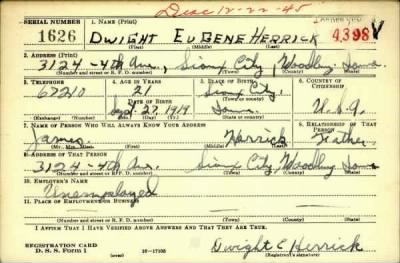 Disc 12-22-45
SERIAL NUMBER 1. NAME (Print) ORDER NUMBER
1626 DWIGHT EUGENE HERRICK 4398 V
(First) (Middle) (Last)
2. ADDRESS (Print)
3124 - 4th Ave., Sioux City, Woodbury Iowa
(Number and street or R. F. D. number) (Town) (County) (State)
3. TELEPHONE 4. AGE IN YEARS 5. PLACE OF BIRTH 6. COUNTRY OF CITIZENSHIP
67210 21 Sioux City,
(Town or county)
DATE OF BIRTH
Sept. 27, 1919 Iowa U.S.A.
(Exchange) (Number) (Mo.) (Day) (Yr.) (State or country)
7. NAME OF PERSON WHO WILL ALWAYS KNOW YOUR ADDRESS 8. RELATIONSHIP OF THAT PERSON
James Herrick Father
(Mr., Mrs., Miss) (First) (Middle) (Last)
9. ADDRESS OF THAT PERSON
3124 - 4th Ave. Sioux City, Woodbury Iowa
(Number and street or R. F. D. number) (Town) (County) (State)
10. EMPLOYER'S NAME
Unemployed
11. PLACE OF EMPLOYMENT OR BUSINESS
(Number and street or R. F. D. number) (Town) (County) (State)
I AFFIRM THAT I HAVE VERIFIED ABOVE ANSWERS AND THAT THEY ARE TRUE.
REGISTRATION CARD
D. S. S. Form 1 16-17105 Dwight E Herrick
(Registrant's signature)